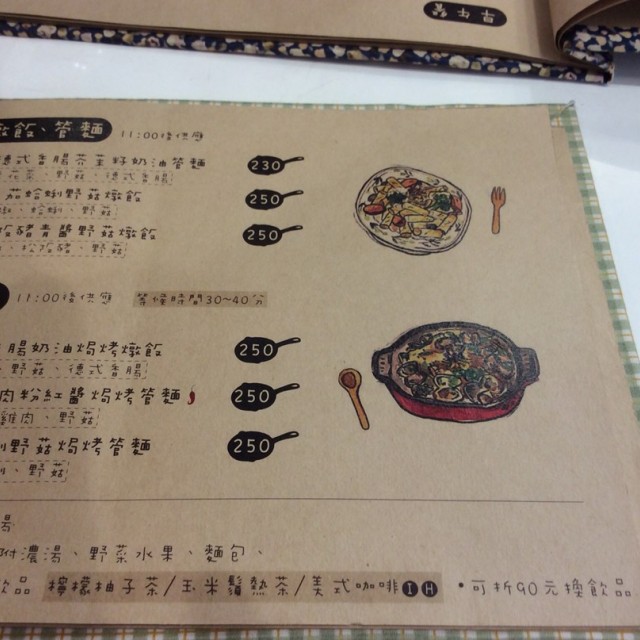 燉飯、管麵 11:00後供應
德式香腸芥茉籽奶油管麵 230
德式香腸
茄蛤蜊野菇燉飯 250
蛤蜊 野菇
酵青醬野菇燉飯 250
野菇
11:00後供應 等候時間30~40分
腸奶油焗烤燉飯 250
野菇 德式香腸
肉粉紅醬焗烤管麵 250
雞肉 野菇
野菇焗烤管麵 250
野菇
湯
附濃湯、野菜水果、麵包、
飲品 檸檬柚子茶/玉米鬚熱茶/美式咖啡 I H •可折90元換飲品